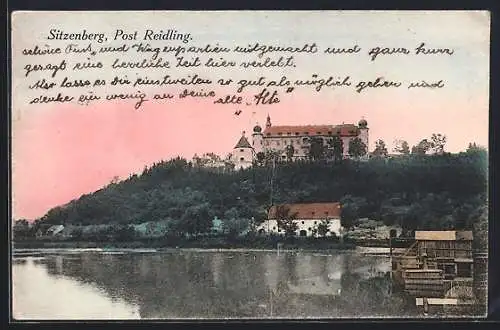 Sitzenberg, Post Reidling.
schöne Fuss „ und Wagenpartien mitgemacht und ganz kurz
gesagt eine herrliche Zeit hier verlebt.
Also lasse es Dir einstweilen so gut als möglich gehen und
denke ein wenig an Deine „alte“ Alte“